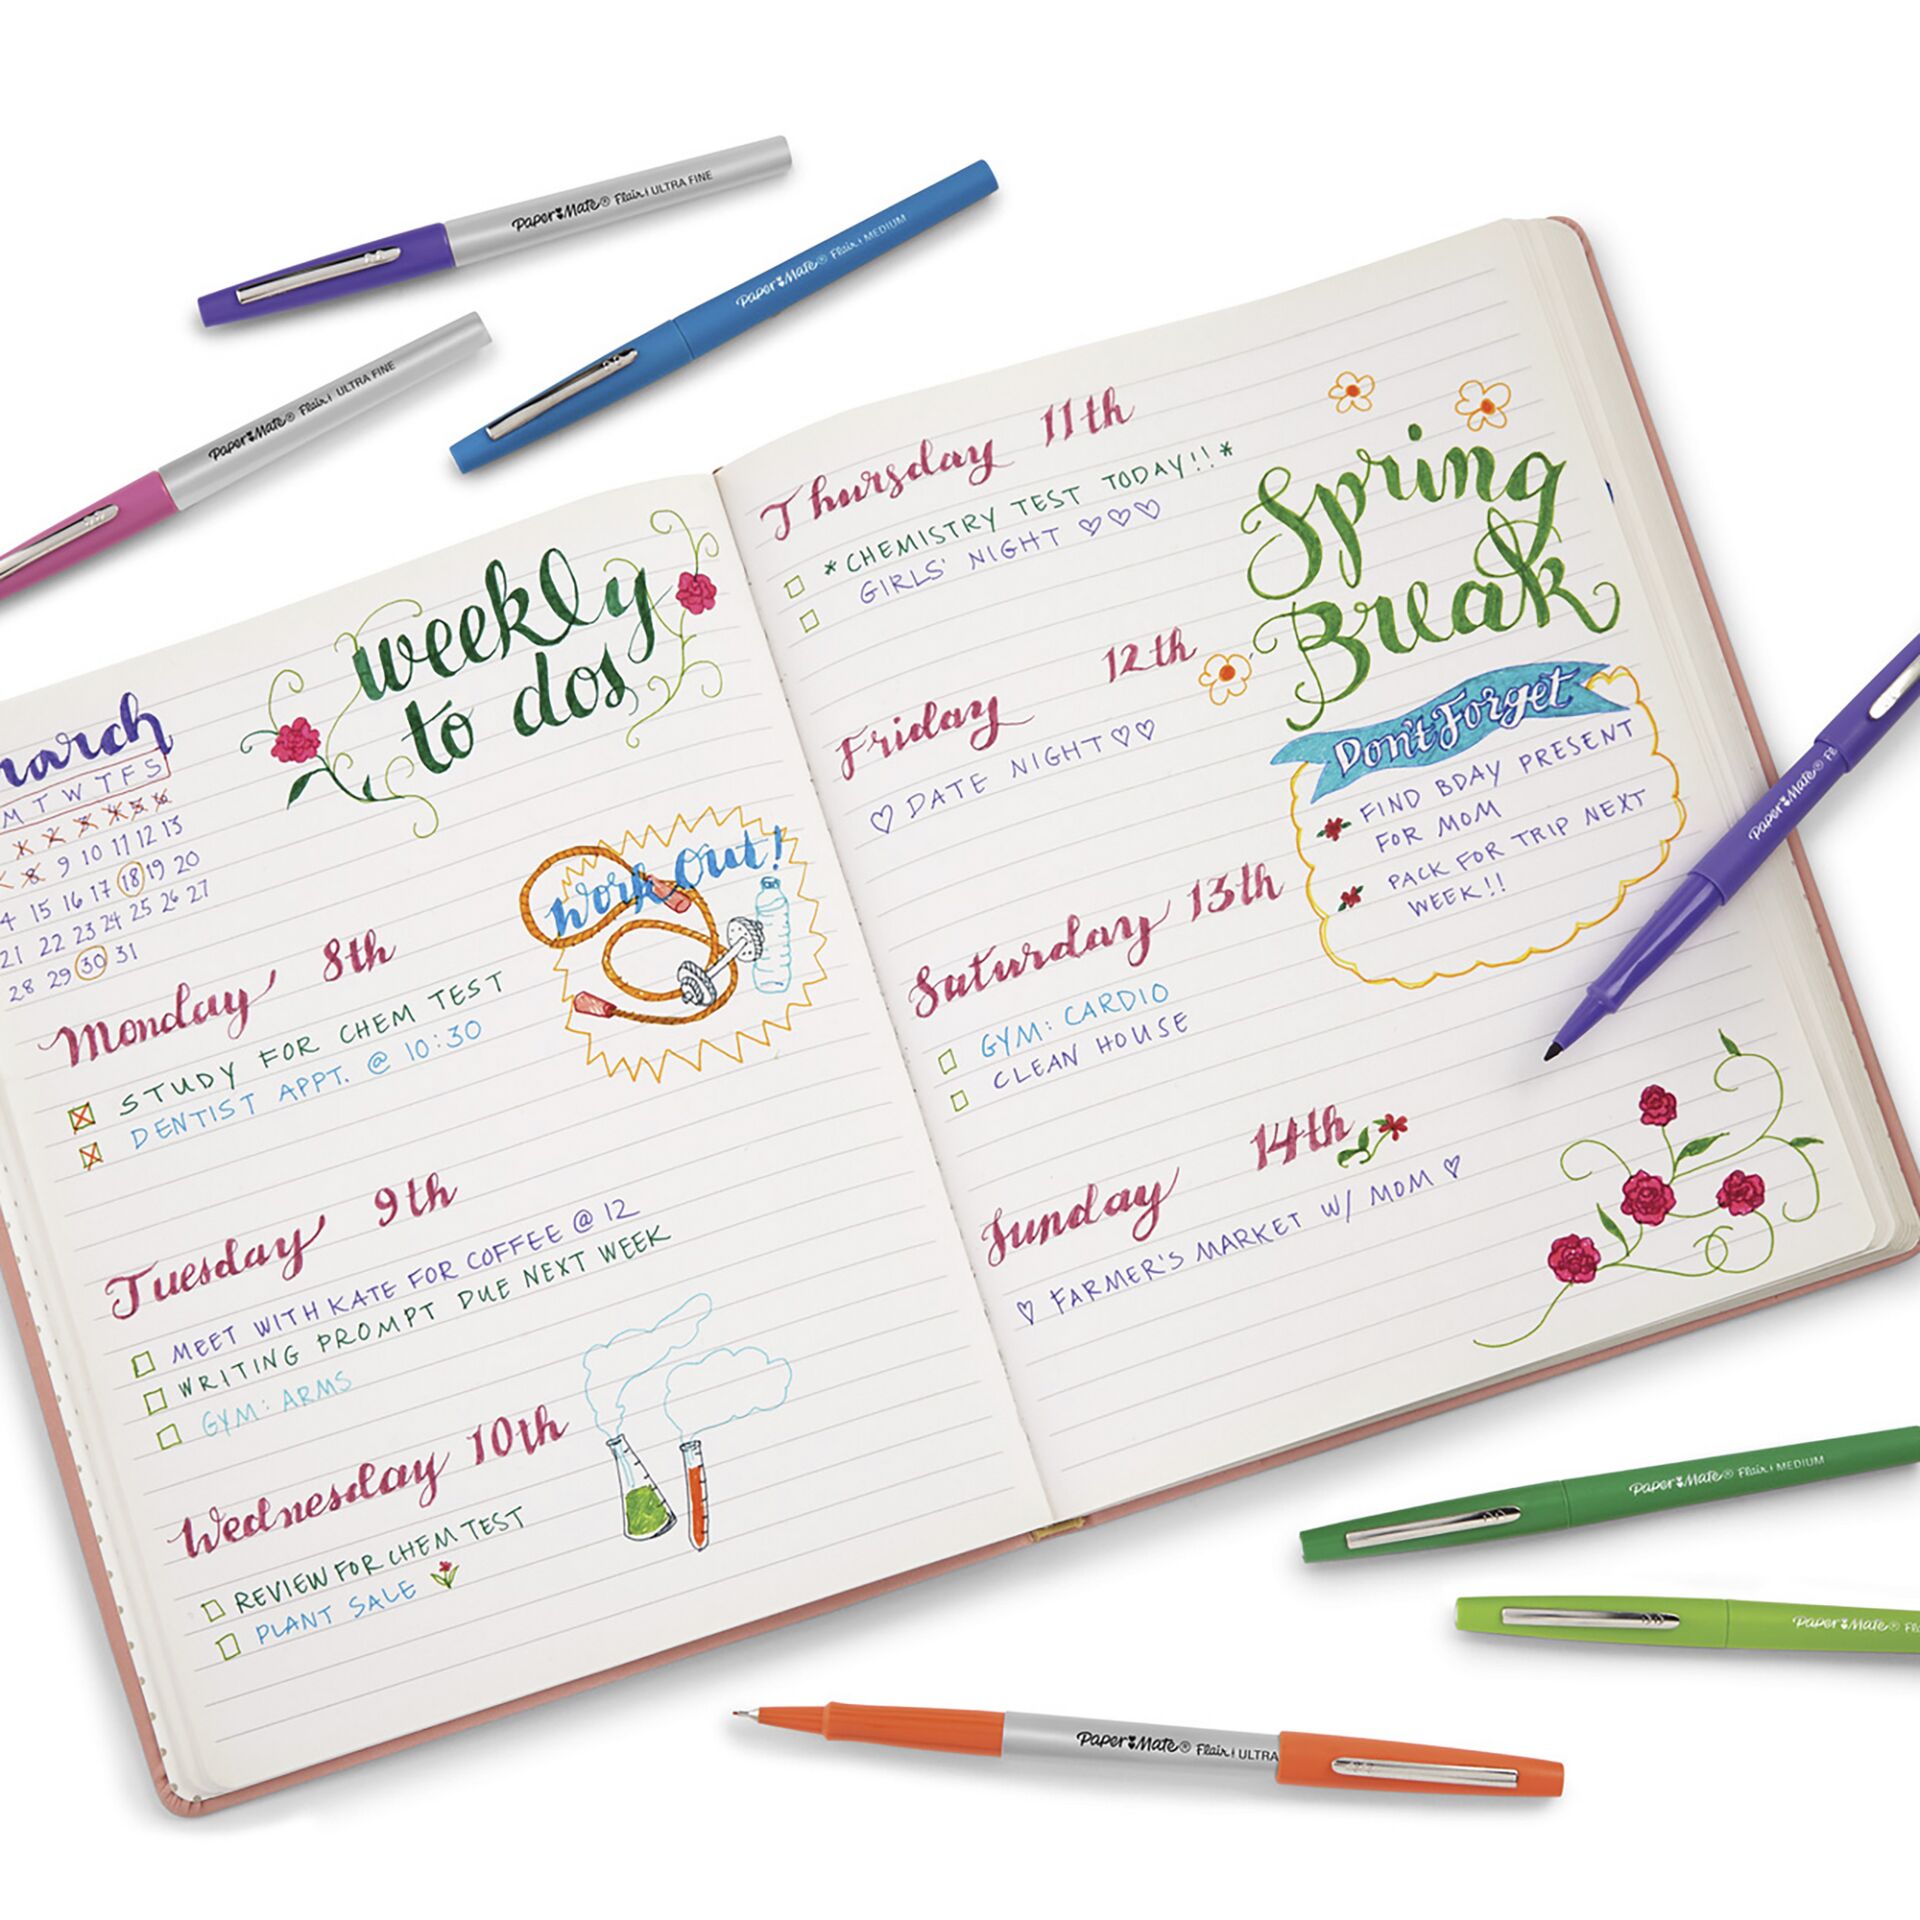 Paper Mate® Flair | ULTRA FINE
Paper Mate® Flair | MEDIUM
Paper Mate® Flair | ULTRA FINE
weekly
to dos
M T W T F S
1 2 3 4 5 6
8 9 10 11 12 13
4 15 16 17 18 19 20
21 22 23 24 25 26 27
28 29 30 31
Work Out!
Monday 8th
STUDY FOR CHEM TEST
DENTIST APPT. @ 10:30
Tuesday 9th
MEET WITH KATE FOR COFFEE @ 12
WRITING PROMPT DUE NEXT WEEK
GYM: ARMS
Wednesday 10th
REVIEW FOR CHEM TEST
PLANT SALE
Thursday 11th
*CHEMISTRY TEST TODAY!!*
GIRLS' NIGHT ♡♡♡
Spring
Break
Friday 12th
♡ DATE NIGHT ♡♡
Don't Forget
FIND BDAY PRESENT
FOR MOM
PACK FOR TRIP NEXT
WEEK!!
Saturday 13th
GYM: CARDIO
CLEAN HOUSE
Sunday 14th
♡ FARMER'S MARKET W/ MOM ♡
Paper Mate® Fl
Paper Mate® Flair | MEDIUM
Paper Mate® Fl
Paper Mate® Flair | ULTRA